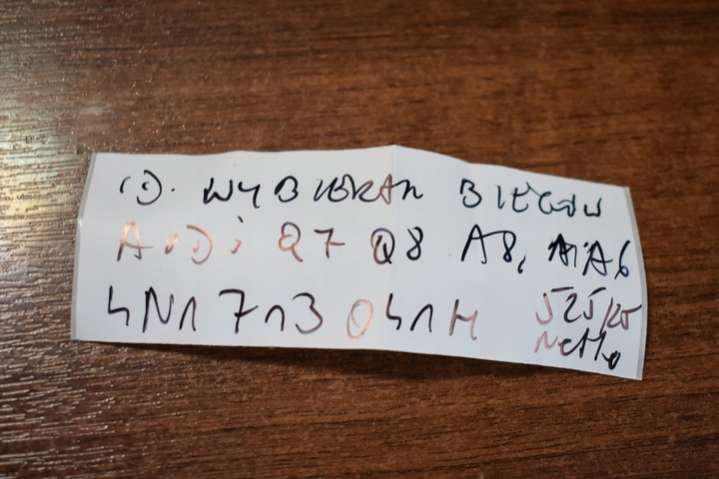 (C). WYBIERAK BIEGÓW
AUDi Q7 Q8 A8, A6
4N1 713 041 H 525,-
Netto